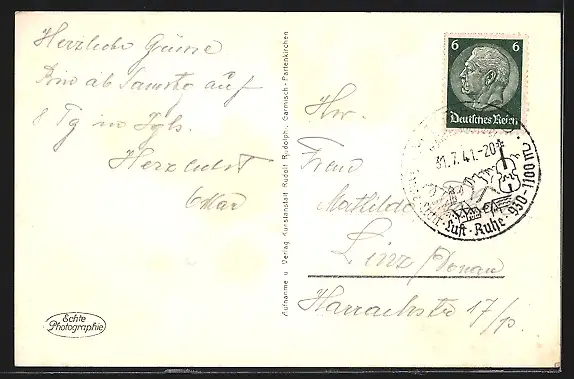 Herzliche Grüsse
Bin ab Samstag auf
8 Tg in Igls.
Herzlichst
Echte
Photographie
Aufnahme u. Verlag Kunstanstalt Rudolf Rudolphi, Garmisch-Partenkirchen
6 6
Deutsches Reich
31.7.41.-20
Luft · Ruhe · 950-1100 m
Frau
Mathilde
Linz/Donau
Harrachstr 17/p.